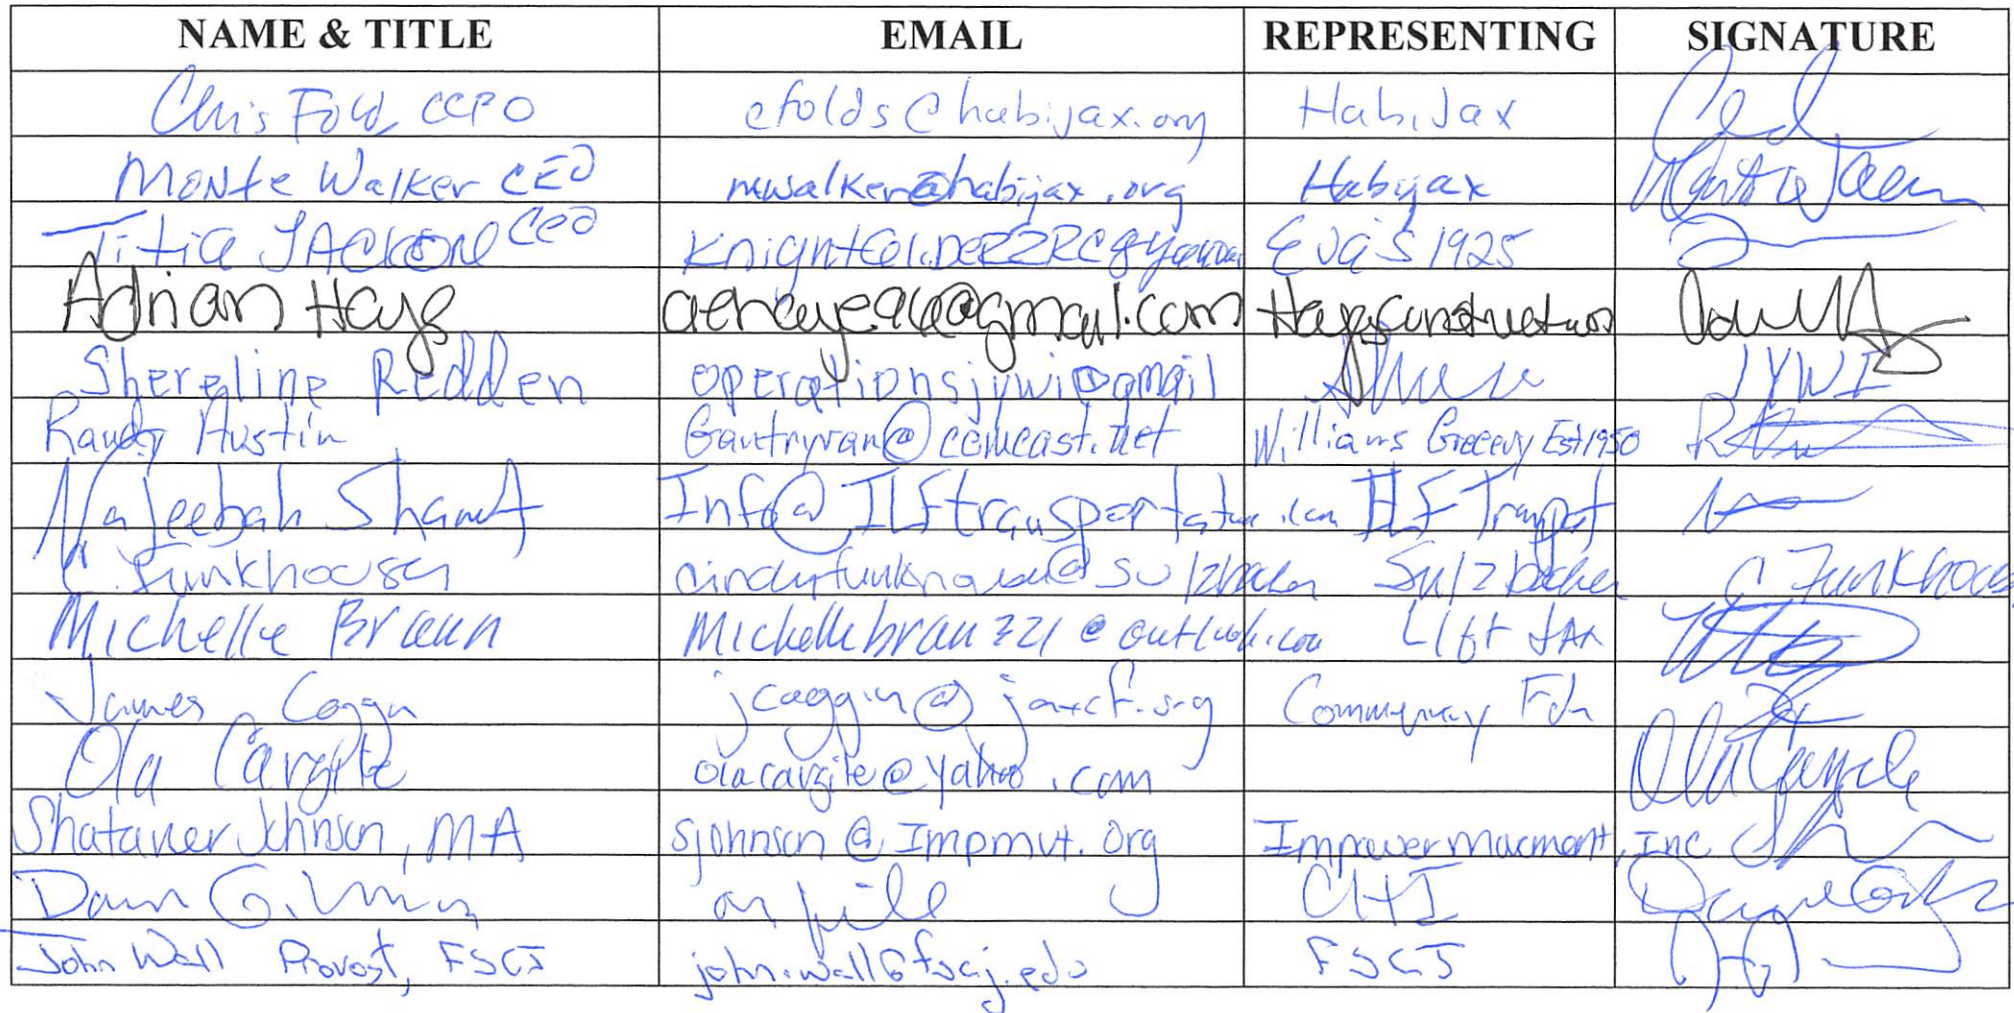 NAME & TITLE EMAIL REPRESENTING SIGNATURE
Chris Folds CCPO cfolds@habijax.org HabiJax
Monte Walker CEO mwalker@habijax.org Habijax
Titia JACKSON CEO Eva's 1925
Adrian Hays @gmail.com
Shereline Redden operationsjywi@gmail JYWI
Randy Austin Gantryran@comcast.net Williams Grocery Est 1950
Najeebah Info@ILFtransportation.com ILF Transport
C. Funkhouser Sulzbacher C Funkhouser
Michelle Braun Michellebraun321@outlook.com Lift JAX
James Coggin jcoggin@jaxcf.org Community Fdn
Ola Cargile olacargile@yahoo.com Ola Cargile
Johnson, MA sjohnson@Impmvt.Org Inc
on file
John Wall Provost, FSCJ john.wall@fscj.edu FSCJ